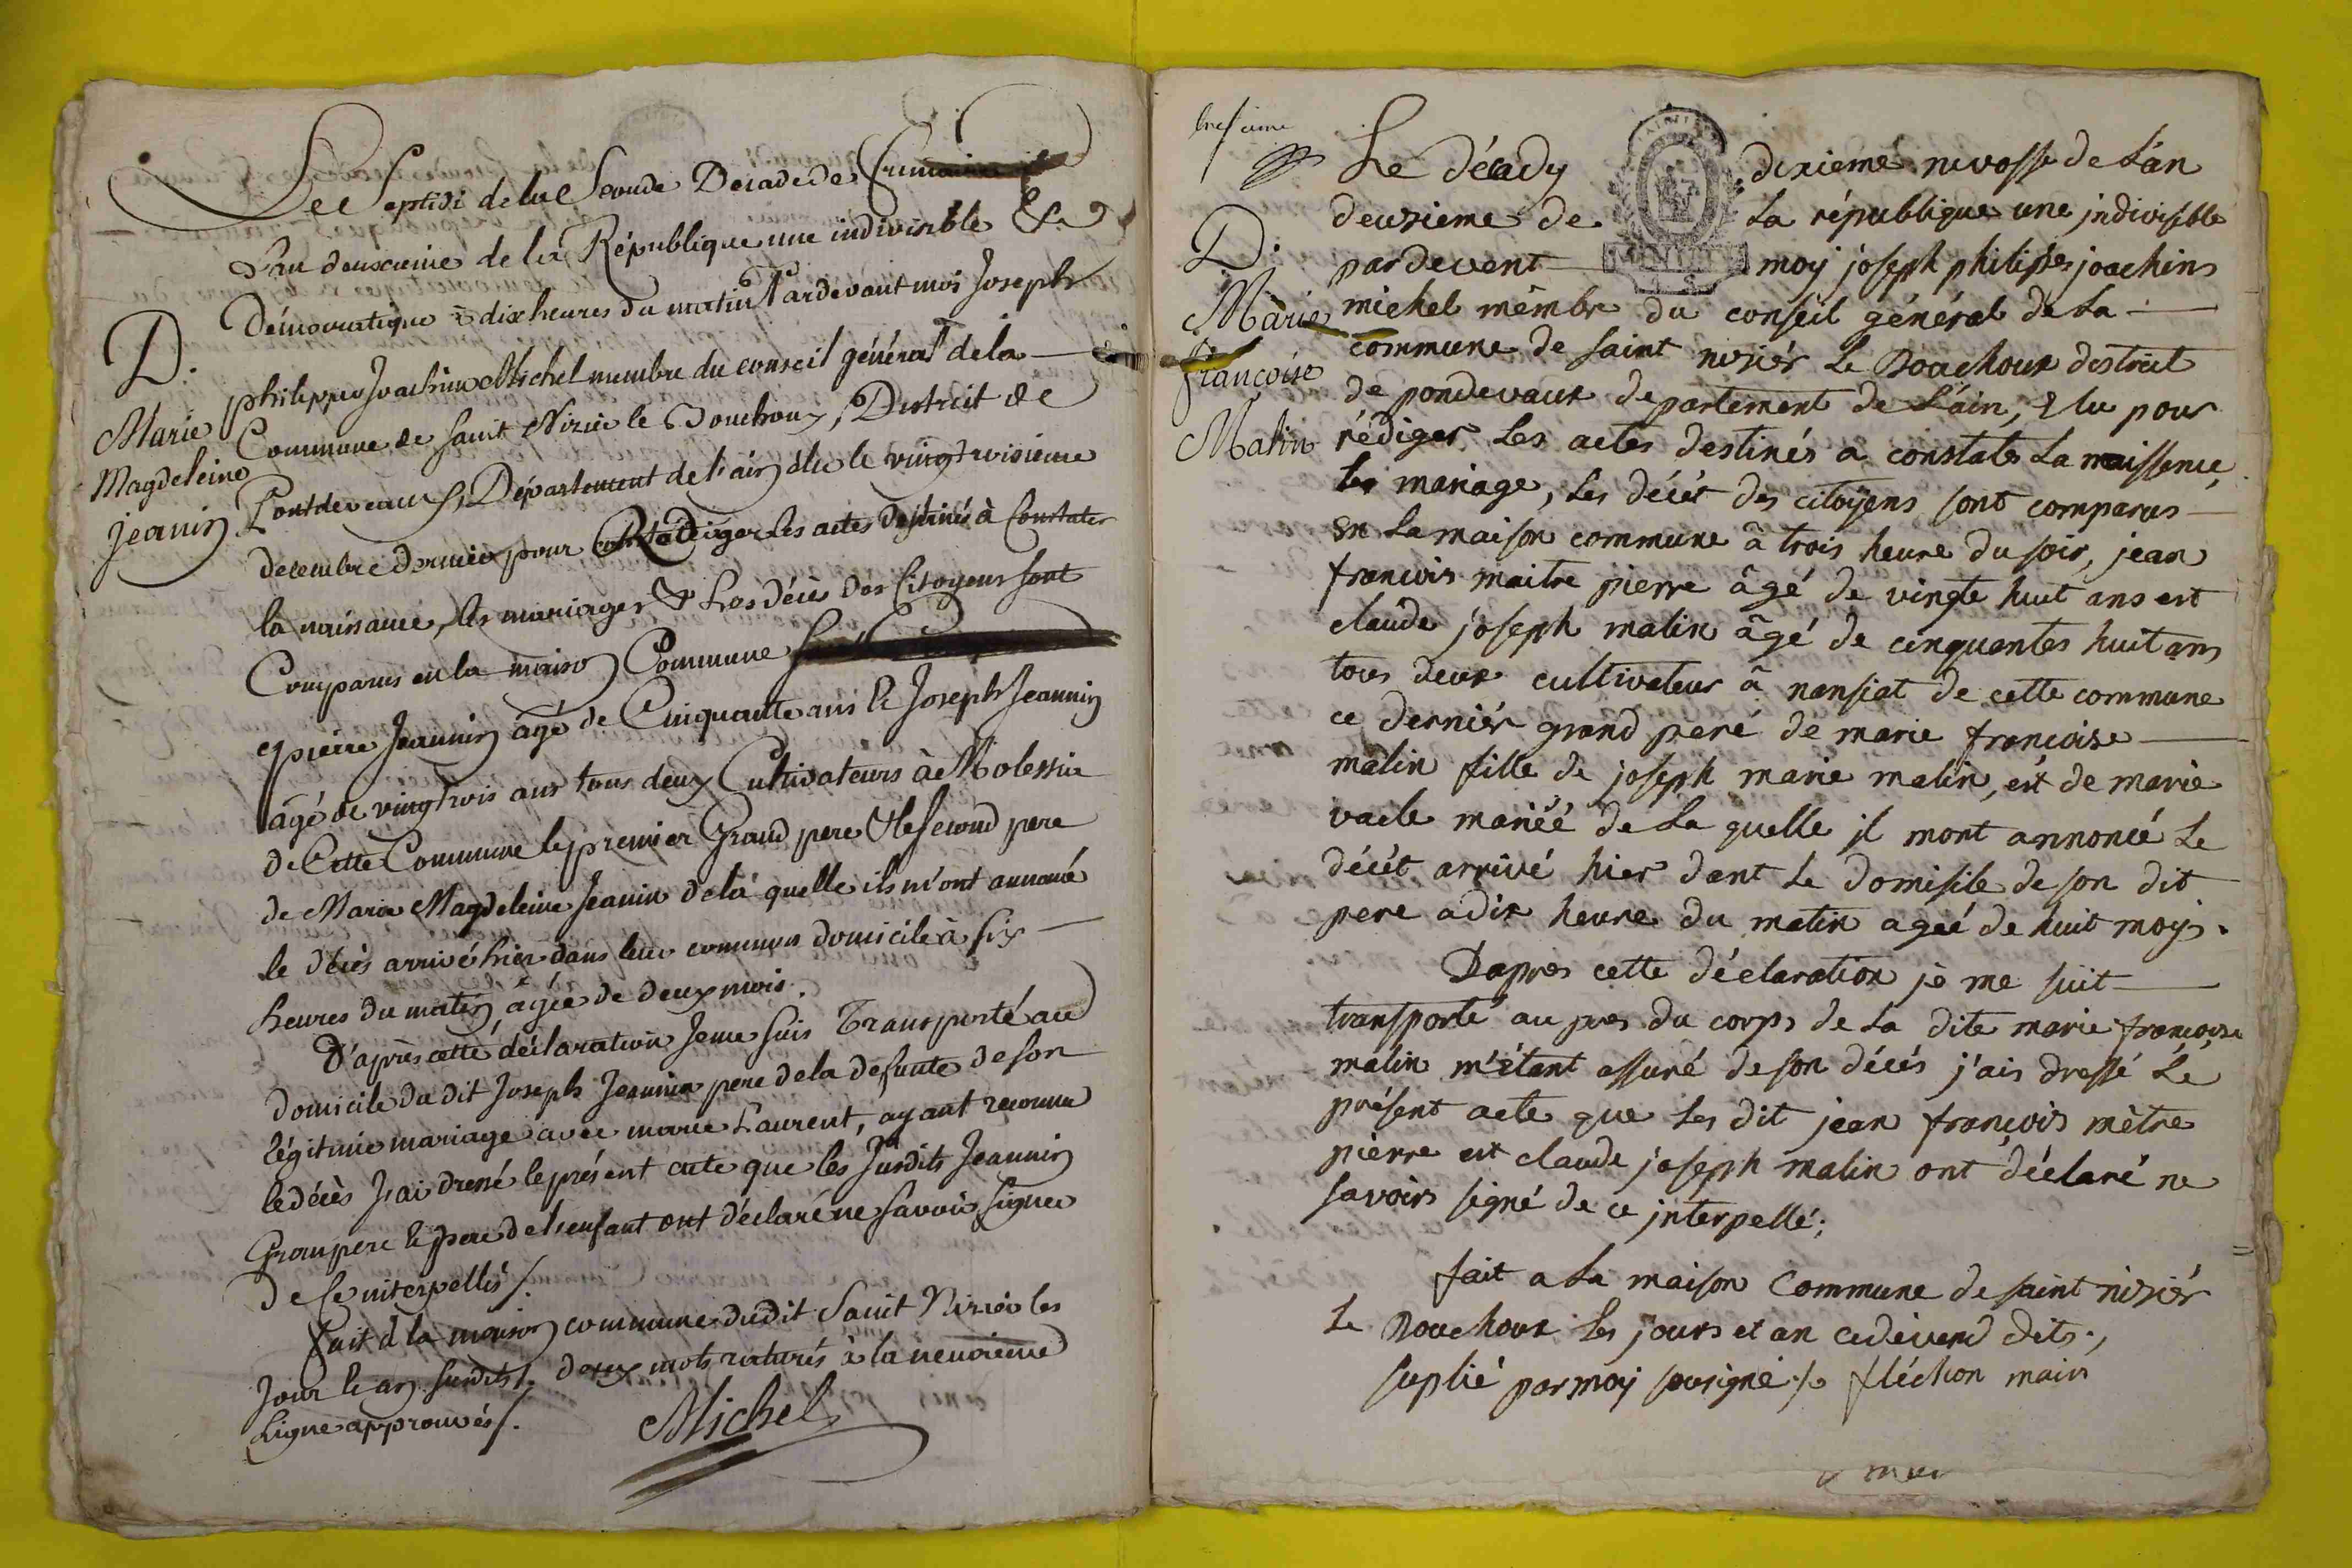 Le Septidi de la Seconde Decade de frimaire
L'an deuxieme de la République une indivisible &
Démocratique à dix heures du matin Pardevant moi Joseph
D.
philippes Joachim Michel membre du conseil général de la
Marie
Commune de Saint Nizier le Bouchoux, District de
Magdeleine
Pontdevaux, Département de l'ain élu le vingt troisieme
Jeanin
decembre dernier pour Rédiger les actes destinés à Constater
la naissance, les mariages & Les décès des Citoyens sont
Comparus en la maison Commune
pierre Jeannin âgé de Cinquante ans & Joseph Jeannin
âgé de vingt trois ans tous deux Cultivateurs à Molessia
de Cette Commune le premier Grand pere & le second pere
de Marie Magdeleine Jeanin de la quelle ils m'ont annoncé
le décès arrivé hier dans leur commun domicile à six
heures du matin âgée de deux mois.
D'après cette déclaration Je me suis Transporté au
domicile du dit Joseph Jeannin pere de la defunte de son
légitime mariage avec marie Laurent, ayant reconnu
le décès J'ai dressé le présent acte que les susdits Jeannin
Grampere & pere de l'enfant ont déclaré ne savoir signer
de Ce interpellés /.
fait à la maison commune dudit Saint Nizier les
Jour & an susdits /. deux mots raturés à la neuvieme
Ligne approuvés /.
Michel
Le décady dixieme nivosse de L'an
deuxieme de La république une indivisible
D.
pardevent moy joseph philippes joachins
MINUTE
Marie
michel mêmbre du conseil général de La
françoise
commune de saint nisiér Le Bouchoux destrict
Malin
de pondevaux departement de L'ain, Elu pour
rédiger Les actes destinés a constater La naissence,
les mariage, Les décét des citoyens sont comparus
En La maison commune à trois heure du soir, jean
francois maitre pierre âgé de vingte huit ans est
claude joseph malin âgé de cinquantes huit ans
tous deux cultivateur à nansiat de cette commune
ce derniér grand peré de marie francoise
malin fille de joseph marie malin, est de marie
vacle mariéé de La quelle il mont annoncé Le
décét arrivé hier dant Le domisile de son dit
pere a dix heure du matin ageé de huit moy.
Dapres cette déclaration je me suit
transporté au pres du corps de La dite marie francoise
malin m'étant assuré de son décés j'ais dressé Le
présent acte que Les dit jean francois mètre
pierre est claude joseph malin ont déclaré ne
savoirs signé de ce jnterpellé;
fait a La maison Commune de saint nisiér
Le Bouchoux Les jours et an cedevend dits.,
suplié par moy sousigné /. fléchon mair